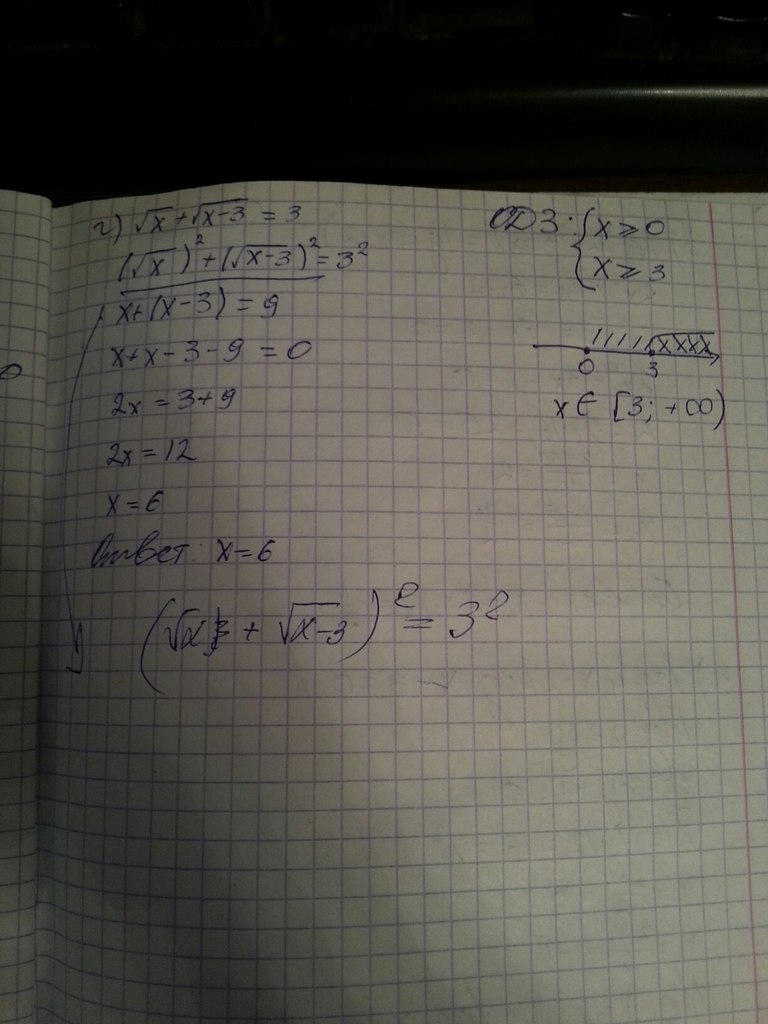 г) √x + √x-3 = 3
(√x)² + (√x-3)² = 3²
x+(x-3) = 9
x+x-3-9 = 0
2x = 3+9
2x = 12
x = 6
Ответ: x=6
(√x + √x-3)² = 3²
ОДЗ: { x ≥ 0
x ≥ 3
0 3
x ∈ [3; +∞)